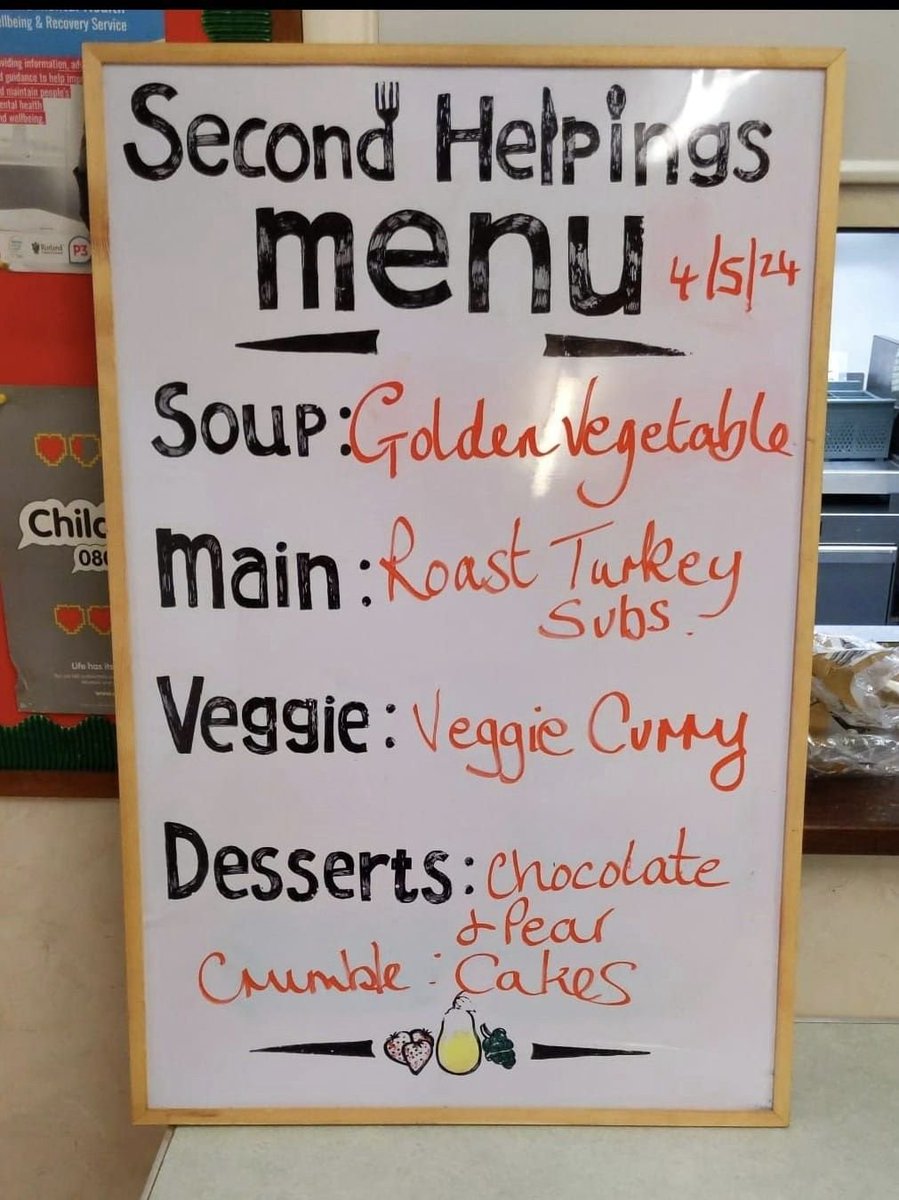 ellbeing & Recovery Service
viding information, ad
d guidance to help imp
d maintain people's
ental health
nd wellbeing.
Rutland
P3
Second Helpings
menu
4/5/24
Soup: Golden Vegetable
Main: Roast Turkey
Subs.
Veggie: Veggie Curry
Desserts: Chocolate
& Pear
Crumble : Cakes
Chilc
080
Life has its